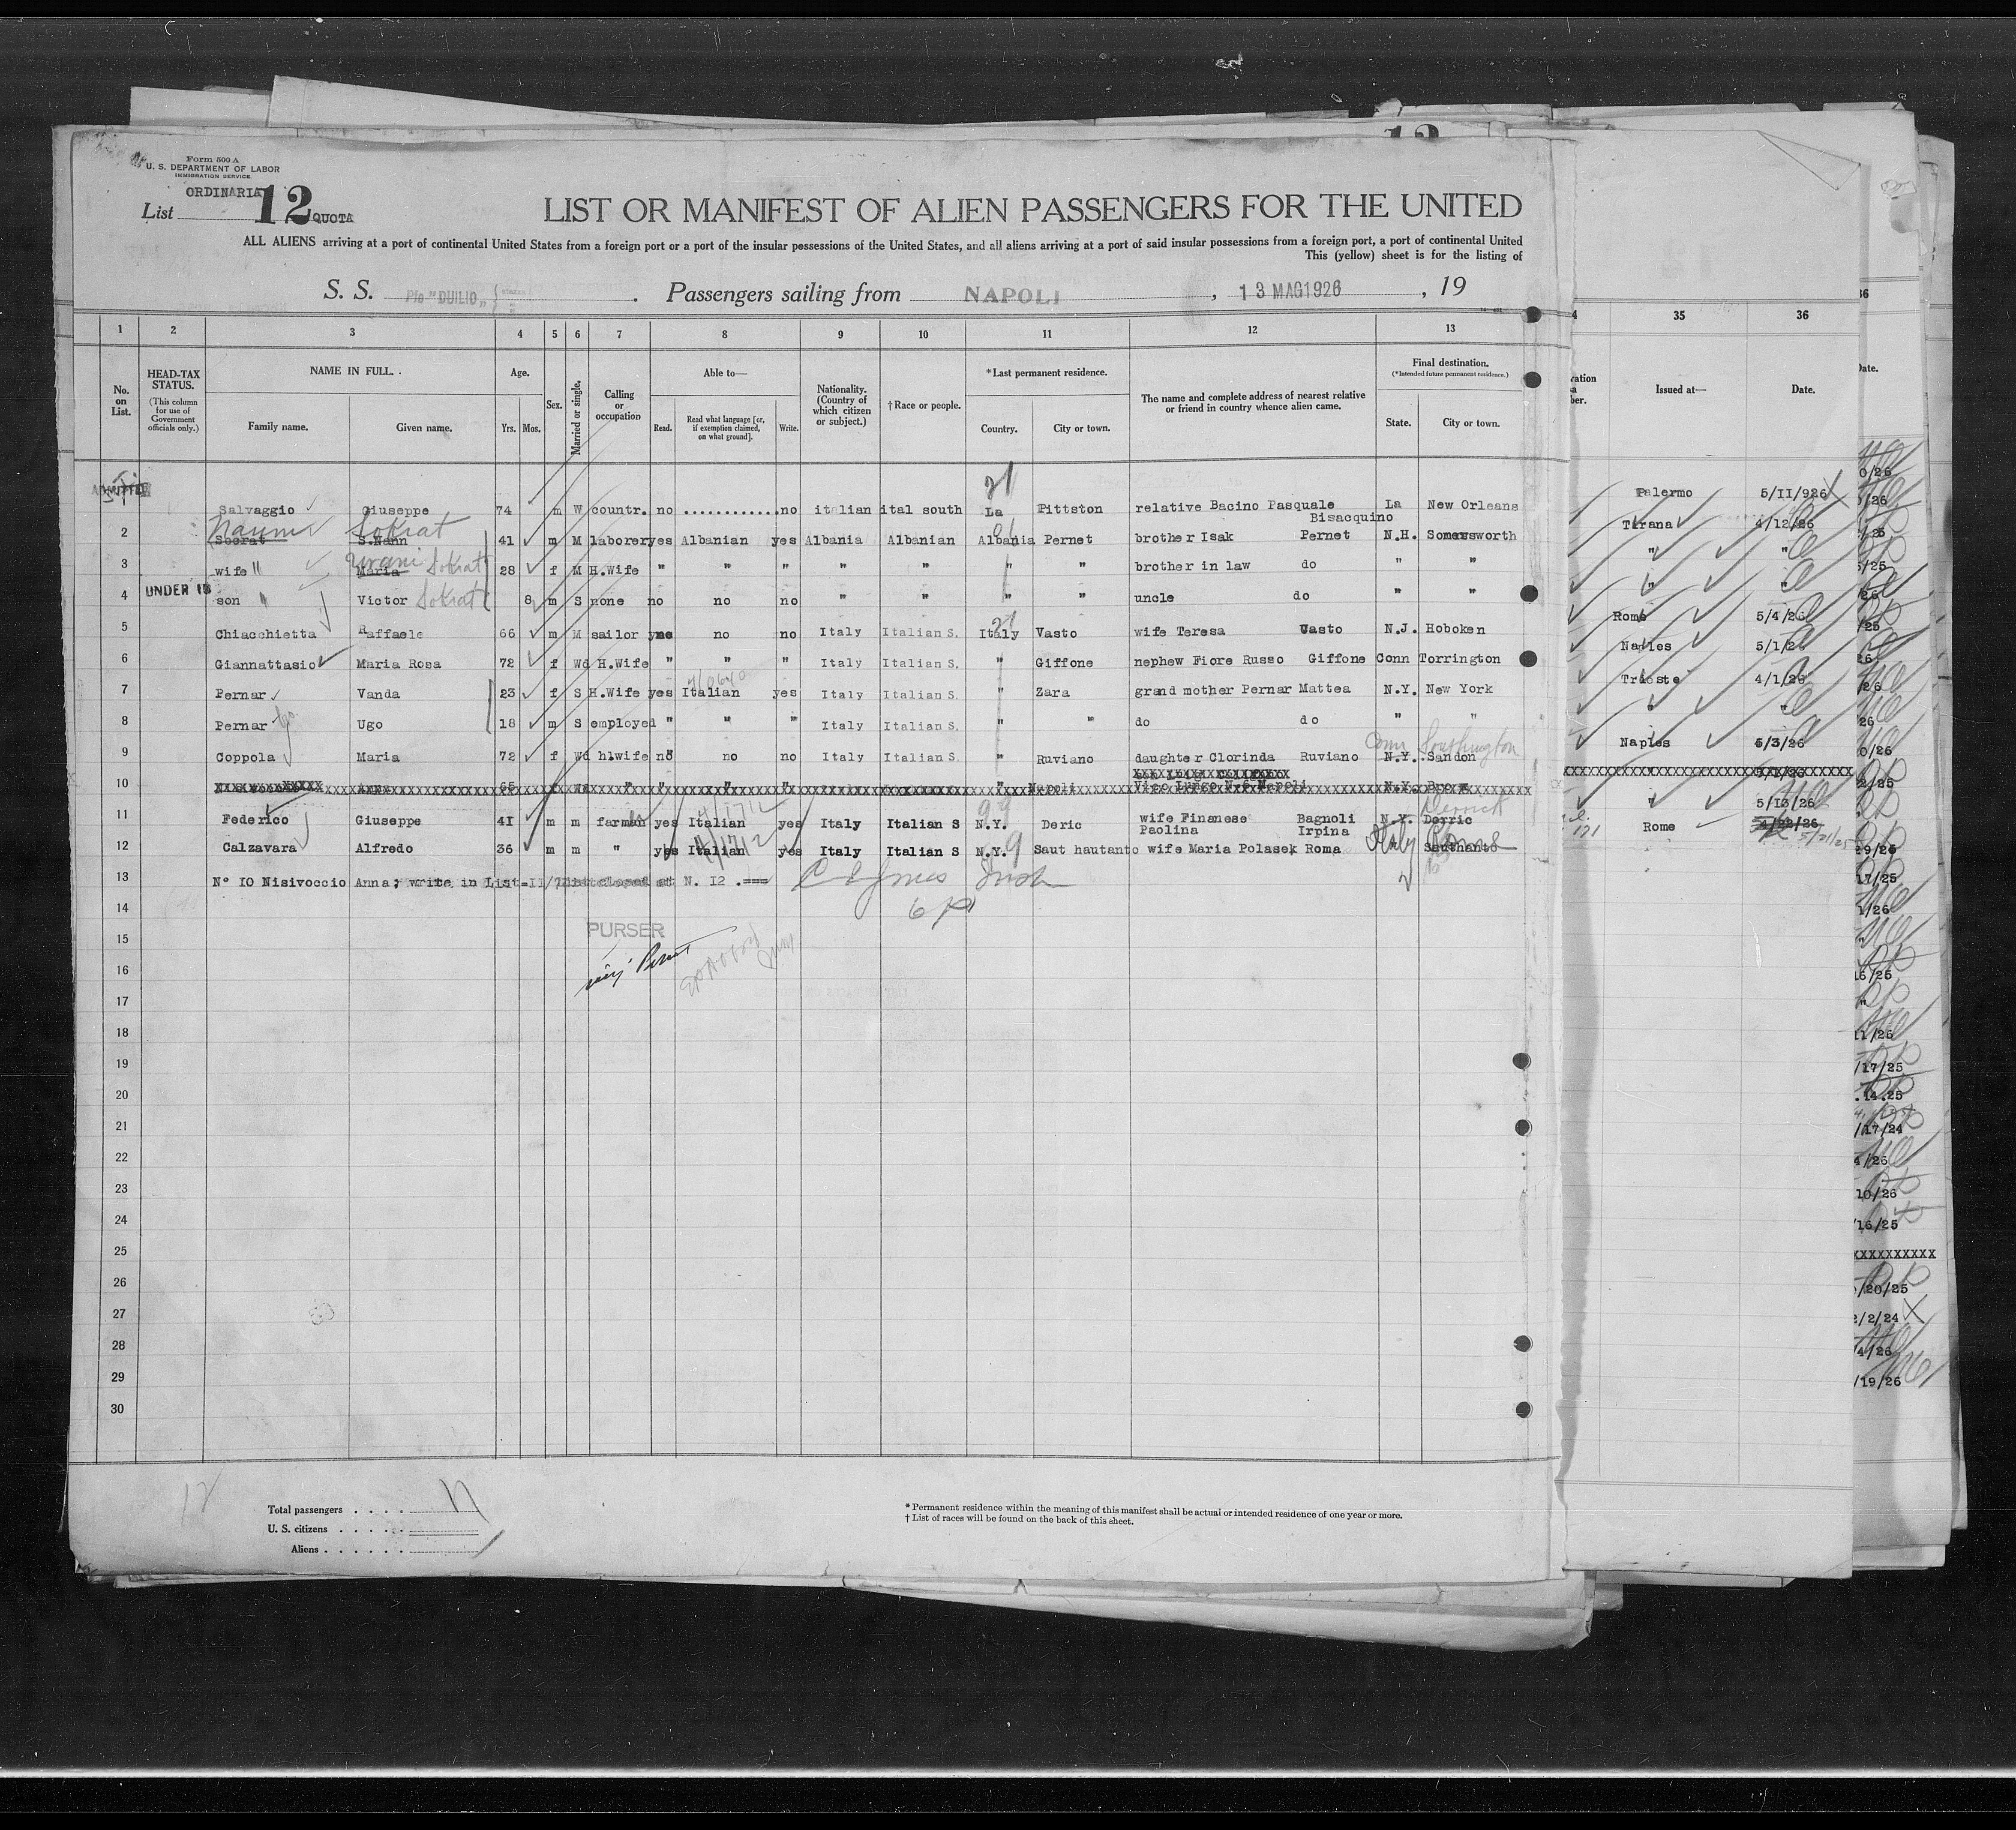 12
Form 500 A
U. S. DEPARTMENT OF LABOR
IMMIGRATION SERVICE
ORDINARIA
List 12 QUOTA
LIST OR MANIFEST OF ALIEN PASSENGERS FOR THE UNITED
ALL ALIENS arriving at a port of continental United States from a foreign port or a port of the insular possessions of the United States, and all aliens arriving at a port of said insular possessions from a foreign port, a port of continental United
This (yellow) sheet is for the listing of
S. S. P/o "DUILIO" . Passengers sailing from NAPOLI , 13 MAG 1926 , 19
1 2 3 4 5 6 7 8 9 10 11 12 13 4 35 36
No. on List.
HEAD-TAX STATUS.
(This column for use of Government officials only.)
NAME IN FULL.
Family name. Given name.
Age.
Yrs. Mos.
Sex.
Married or single.
Calling or occupation
Able to—
Read. Read what language [or, if exemption claimed, on what ground]. Write.
Nationality. (Country of which citizen or subject.)
†Race or people.
*Last permanent residence.
Country. City or town.
The name and complete address of nearest relative or friend in country whence alien came.
Final destination.
(*Intended future permanent residence.)
State. City or town.
Issued at— Date.
ADMITTED
21
Salvaggio Giuseppe 74 m W countr. no ............ no italian ital south La Pittston relative Bacino Pasquale Bisacquino La New Orleans Palermo 5/11/926
Naum Sokrat
2 Socrat S.Nann 41 m M laborer yes Albanian yes Albania Albanian Albania Pernet brother Isak Pernet N.H. Somersworth Tirana 4/12/26
3 wife " Maria Sokrat 28 f M H.Wife " " " " " " " brother in law do " " " "
UNDER 16
4 son " Victor Sokrat 8 m S none no no no " " " " uncle do " " " "
5 Chiacchietta Raffaele 66 m M sailor no no Italy Italian S. Italy Vasto wife Teresa Vasto N.J. Hoboken Rome 5/4/26
6 Giannattasio Maria Rosa 72 f Wd H.Wife " " " Italy Italian S. " Giffone nephew Fiore Russo Giffone Conn Torrington Naples 5/1/26
7 Pernar Vanda 23 f S H.Wife yes Italian yes Italy Italian S. " Zara grand mother Pernar Mattea N.Y. New York Trieste 4/1/26
8 Pernar Ugo 18 m S employed " " " Italy Italian S. " " do do " " " "
Conn Southington
9 Coppola Maria 72 f Wd h.wife no no no Italy Italian S. " Ruviano daughter Clorinda Ruviano N.Y. Sandon Naples 5/3/26
10 Anna 65 f Wd " " " " " Napoli Vico Lungo Napoli N.Y.
Derrick
11 Federico Giuseppe 41 m m farman yes Italian yes Italy Italian S N.Y. Deric wife Finanese Paolina Bagnoli Irpina N.Y. Derric " 5/13/26
12 Calzavara Alfredo 36 m m " yes Italian yes Italy Italian S N.Y. Saut hautanto wife Maria Polasek Roma Italy Rome Sauthanto Rome 4/22/26 5/21/25
13 N° 10 Nisivoccio Anna; write in List-11/ N. 12 .===
14
15 PURSER
16
17
18
19
20
21
22
23
24
25
26
27
28
29
30
12
Total passengers . . . . 11
U. S. citizens . . . . .
Aliens . . . . . .
* Permanent residence within the meaning of this manifest shall be actual or intended residence of one year or more.
† List of races will be found on the back of this sheet.